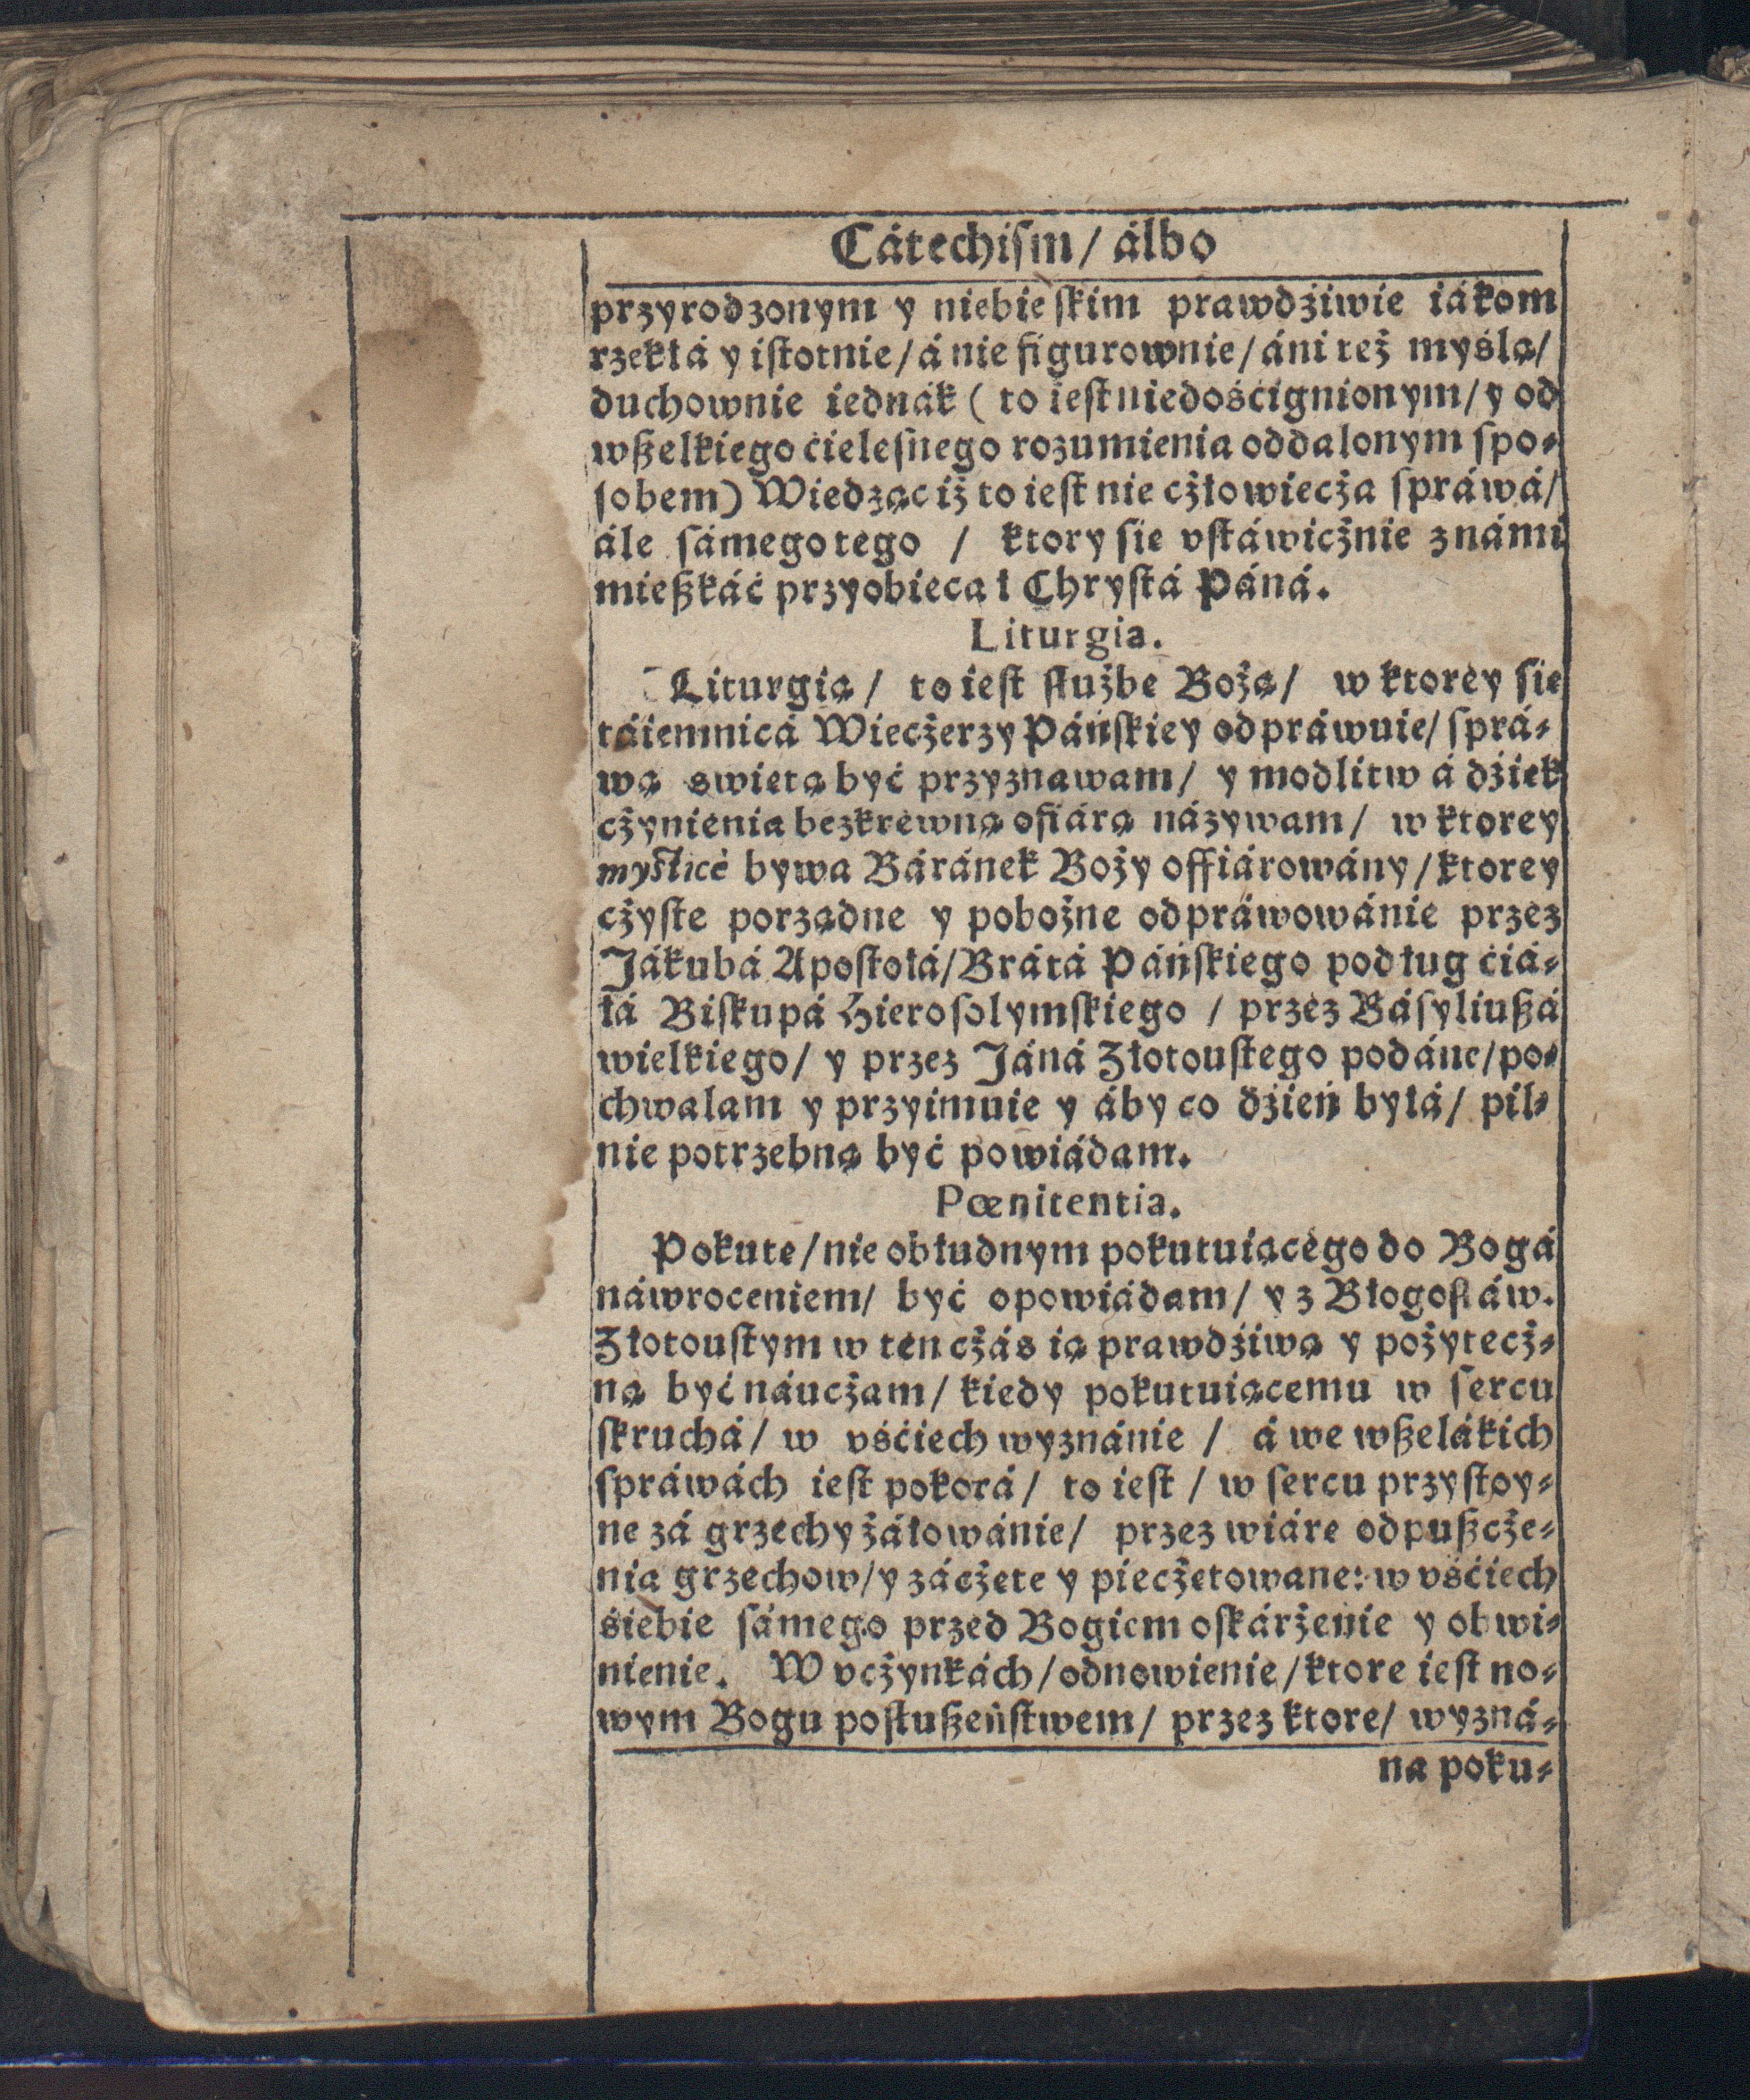 Cátechiſm/ álbo
przyrodzonym y niebieſkim prawdźiwie iákom
rzekłá y iſtotnie/ á nie figurownie/ áni też myślą/
duchownie iednák ( to ieſt niedośćignionym/ y od
wßelkiego ćieleſnego rozumienia oddalonym ſpo-
ſobem) Wiedząc iż to ieſt nie cżłowiecża ſpráwá/
ále ſámego tego / ktory ſie vſtáwicżnie známi
mießkáć przyobiecał Chryſtá Páná.
Liturgia.
Liturgią/ to ieſt ſłużbe Bożą/ w ktorey ſie
táiemnicá Wiecżerzy Páńſkiey odpráwuie/ ſprá-
wą swietą być przyznawam/ y modlitw á dźiek
cżynienia bezkrewną ofiárą názywam/ w ktorey
mysticè bywa Báránek Boży offiárowány/ ktorey
cżyſte porządne y pobożne odpráwowánie przez
Jákubá Apoſtołá/ Brátá Páńſkiego podług ćiá-
łá Biſkupá Hieroſolymſkiego / przez Báſyliußá
wielkiego/ y przez Jáná Złotouſtego podáne/ po-
chwalam y przyimuie y áby co dźień byłá/ pil-
nie potrzebną być powiádam.
Pœnitentia.
Pokute/ nie obłudnym pokutuiącego do Bogá
náwroceniem/ być opowiádam/ y z Błogoſłáw.
Złotouſtym w ten cżás ią prawdźiwą y pożytecż-
ną być náucżam/ kiedy pokutuiącemu w ſercu
ſkruchá/ w vśćiech wyznánie / á we wßelákich
ſpráwách ieſt pokorá/ to ieſt / w ſercu przyſtoy-
ne zá grzechy żáłowánie/ przez wiáre odpußcże-
nia grzechow/ y zácżete y piecżetowane: w vśćiech
śiebie ſámego przed Bogiem oſkárżenie y obwi-
nienie. W vcżynkách/ odnowienie/ ktore ieſt no-
wym Bogu poſłußeńſtwem/ przez ktore/ wyzná-
na poku-